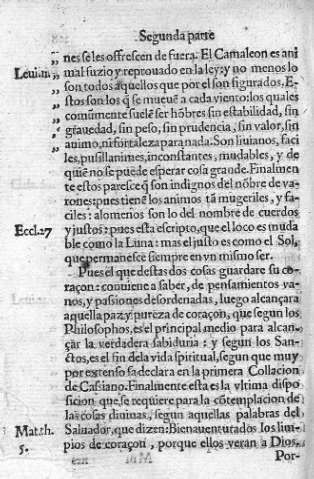 Segunda parte
„ nes se les offrescen de fuera. El Camaleon es ani
Leui.11. „ mal suzio y reprouado en la ley: y no menos lo
„ son todos aquellos que por el son figurados, E-
„ stos son los q̃ se mueuẽ a cada viento: los quales
„ comũmente suelẽ ser hõbres sin estabilidad, sin
„ grauedad, sin peso, sin prudencia, sin valor, sin
„ animo, ni fortaleza para nada. Son liuianos, faci
les, pusillanimes, inconstantes, mudables, y de
quiẽ no se puede esperar cosa grande. Finalmen
te estos paresce q̃ son indignos del nõbre de va-
rones: pues tienẽ los animos tã mugeriles, y fa-
ciles: alomeños son lo del nombre de cuerdos
Eccl.27 y justos: pues esta escripto, que el loco es muda
ble como la Luna: mas el justo es como el Sol,
que permanesce siempre en vn mismo ser.
Pues el que destas dos cosas guardare su co-
raçon: conuiene a saber, de pensamientos va-
nos, y passiones desordenadas, luego alcançara
aquella paz y pureza de coraçon, que segun los
Philosophos, es el principal medio para alcan-
çar la verdadera sabiduria: y segun los San-
ctos, es el fin dela vida spiritual, segun que muy
por extenso fa declara en la primera Collacion
de Cassiano. Finalmente esta es la vltima dispo
sicion que se requiere para la cõtemplacion de
las cosas diuinas, segun aquellas palabras del
Matth. Saluador, que dizen: Bienauenturados los lim-
5. pios de coraçon, porque ellos veran a Dios.
Por-